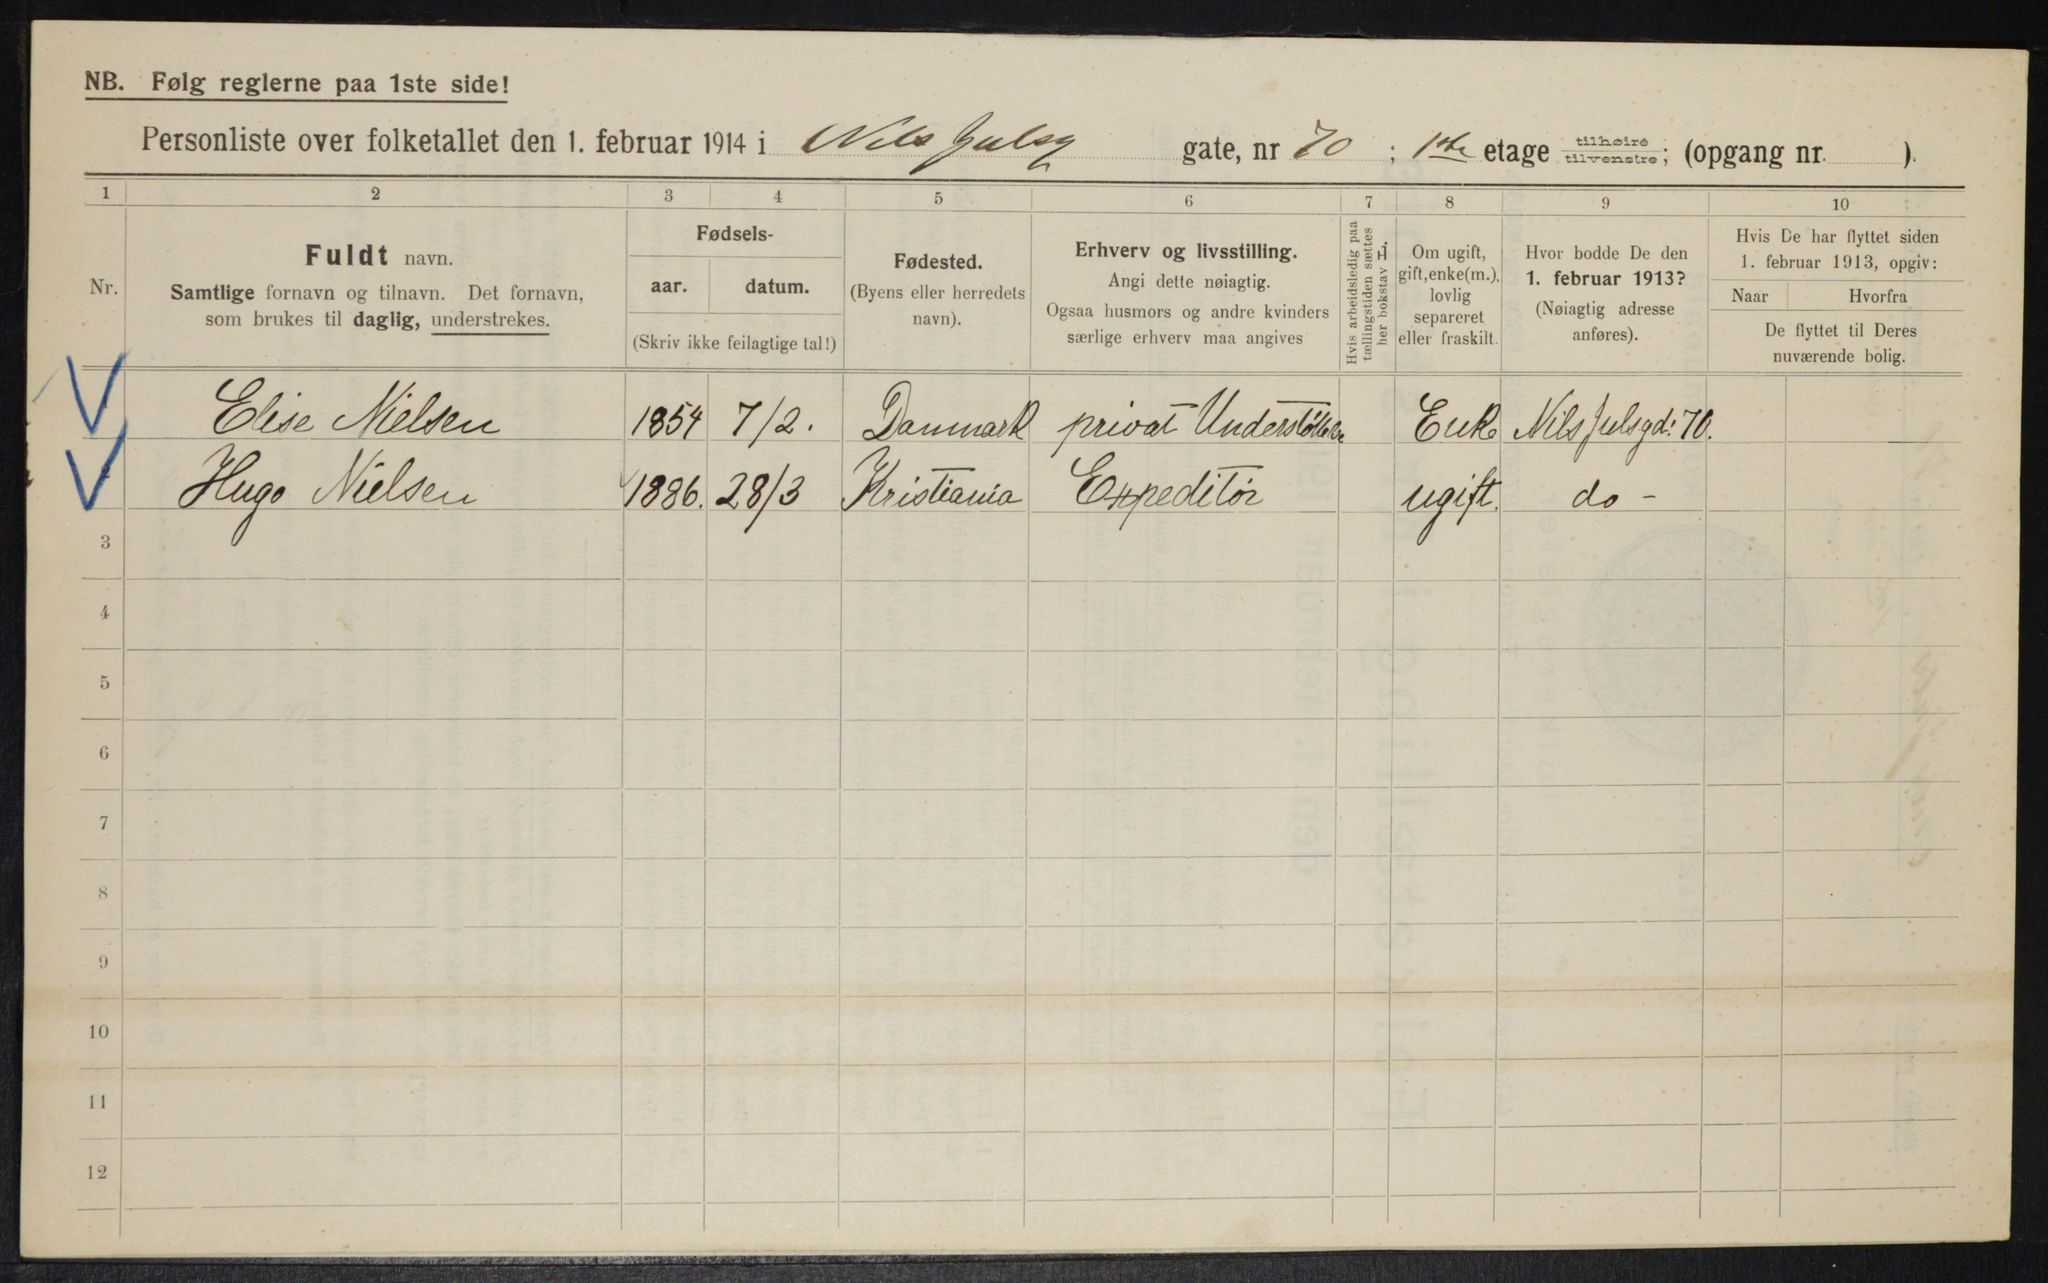 NB. Følg reglerne paa 1ste side!
Personliste over folketallet den 1. februar 1914 i Nils Julsg gate, nr 70 ; 1ste etage tilhøire tilvenstre; (opgang nr. ).
1 2 3 4 5 6 7 8 9 10
Nr.
Fuldt navn.
Samtlige fornavn og tilnavn. Det fornavn,
som brukes til daglig, understrekes.
Fødsels-
aar. datum.
(Skriv ikke feilagtige tal!)
Fødested.
(Byens eller herredets
navn).
Erhverv og livsstilling.
Angi dette nøiagtig.
Ogsaa husmors og andre kvinders
særlige erhverv maa angives
Hvis arbeidsledig paa
tællingstiden sættes
her bokstav L.
Om ugift,
gift, enke(m.),
lovlig
separeret
eller fraskilt.
Hvor bodde De den
1. februar 1913?
(Nøiagtig adresse
anføres).
Hvis De har flyttet siden
1. februar 1913, opgiv:
Naar Hvorfra
De flyttet til Deres
nuværende bolig.
Elise Nielsen 1854 7/2. Danmark privat Enke Nils Julsgd: 70.
Hugo Nielsen 1886. 28/3 Kristiania Expeditör ugift. do -
3
4
5
6
7
8
9
10
11
12